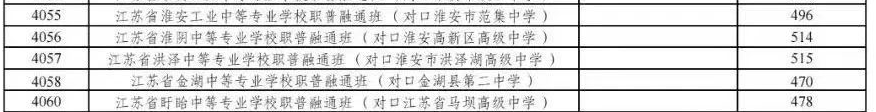 4055 江苏省淮安工业中等专业学校职普融通班（对口淮安市范集中学） 496
4056 江苏省淮阴中等专业学校职普融通班（对口淮安高新区高级中学） 514
4057 江苏省洪泽中等专业学校职普融通班（对口淮安市洪泽湖高级中学） 515
4058 江苏省金湖中等专业学校职普融通班（对口金湖县第二中学） 470
4060 江苏省盱眙中等专业学校职普融通班（对口江苏省马坝高级中学） 478